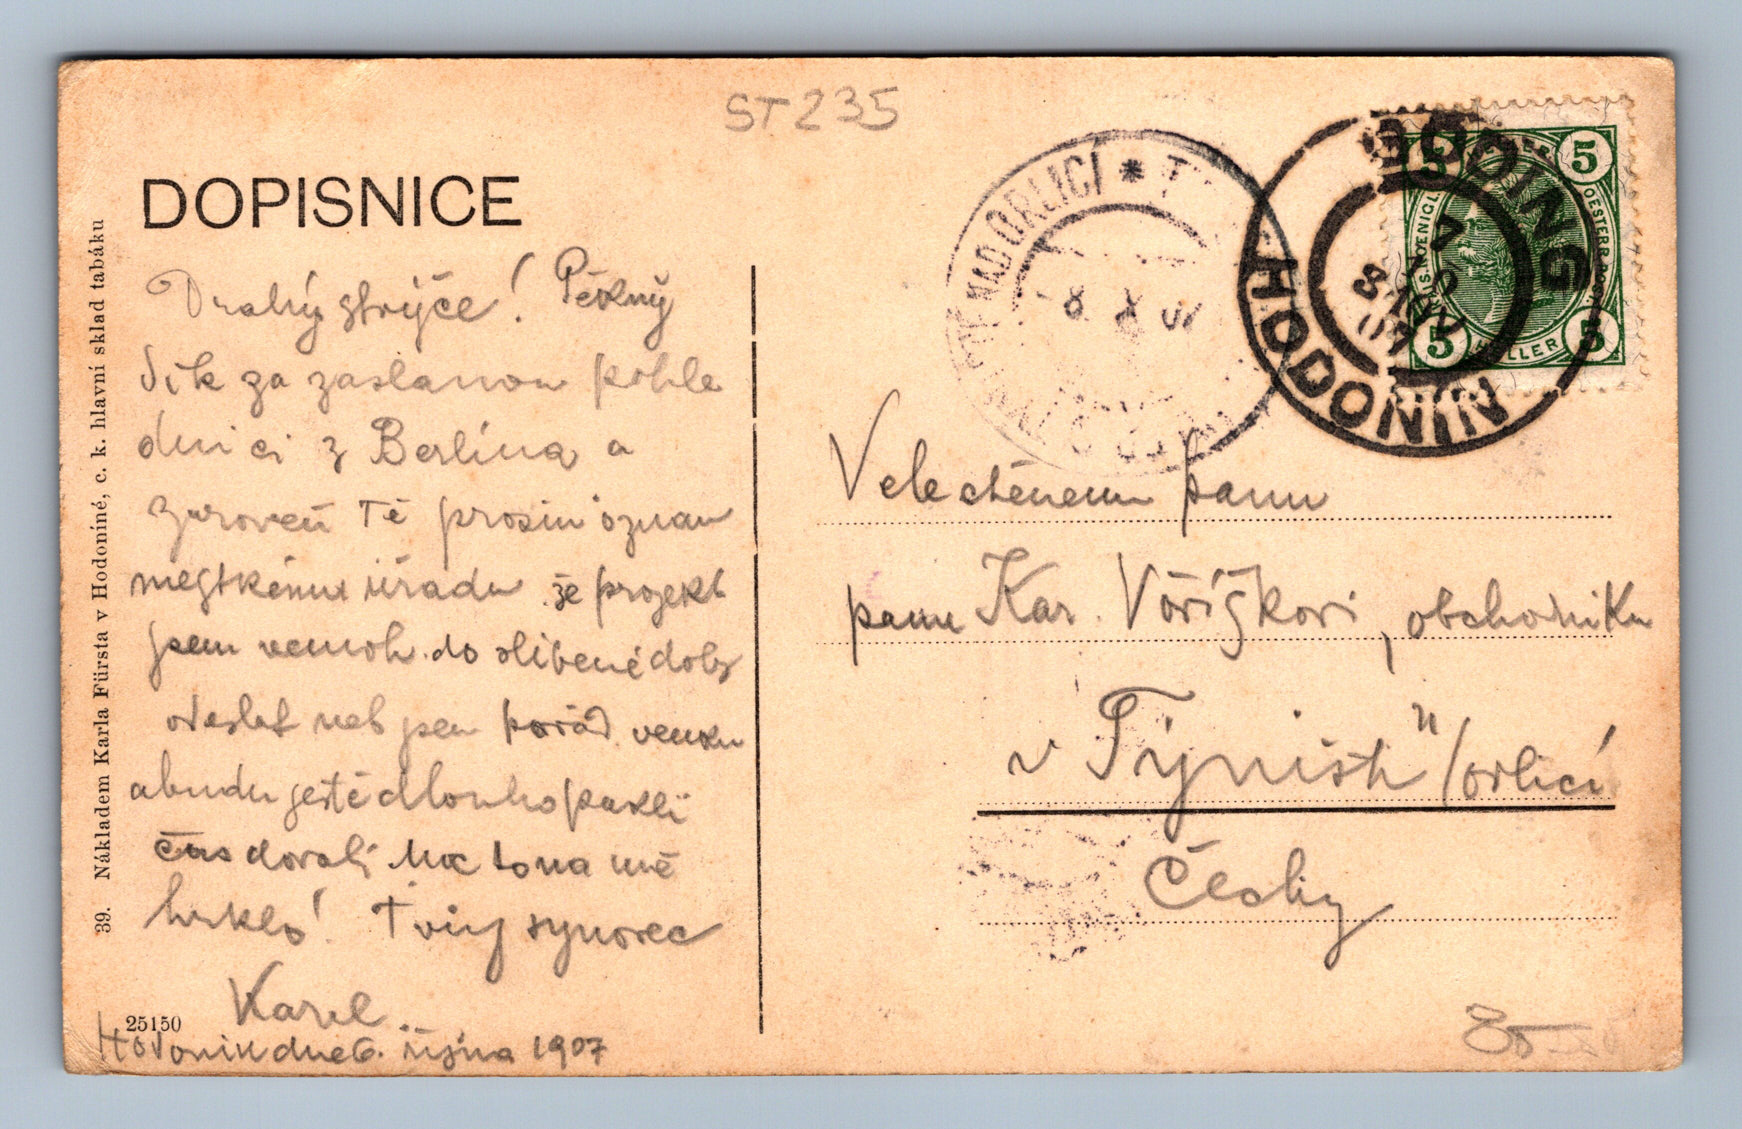 ST235
DOPISNICE
39. Nákladem Karla Fürsta v Hodoníně, c. k. hlavní sklad tabáku
Drahý strýče! Pěkný
dík za zaslanou pohle
dnici z Berlína a
zároveň Tě prosím oznam
městkému úřadu že projekt
jsem nemoh do slíbené doby
odeslat neb jsem pořád venku
a budu ještě dlouho pakli
čas dovolí na mě
Tvůj synovec
Karel
25150
Hodonín dne 6. října 1907
NAD ORLICÍ * T
8 X
GÖDING
HODONÍN
7 10
5
5
5
5
HELLER
Velectěnému panu
panu Kar. Voříškovi, obchodníku
v Týništi n/Orlicí
Čechy